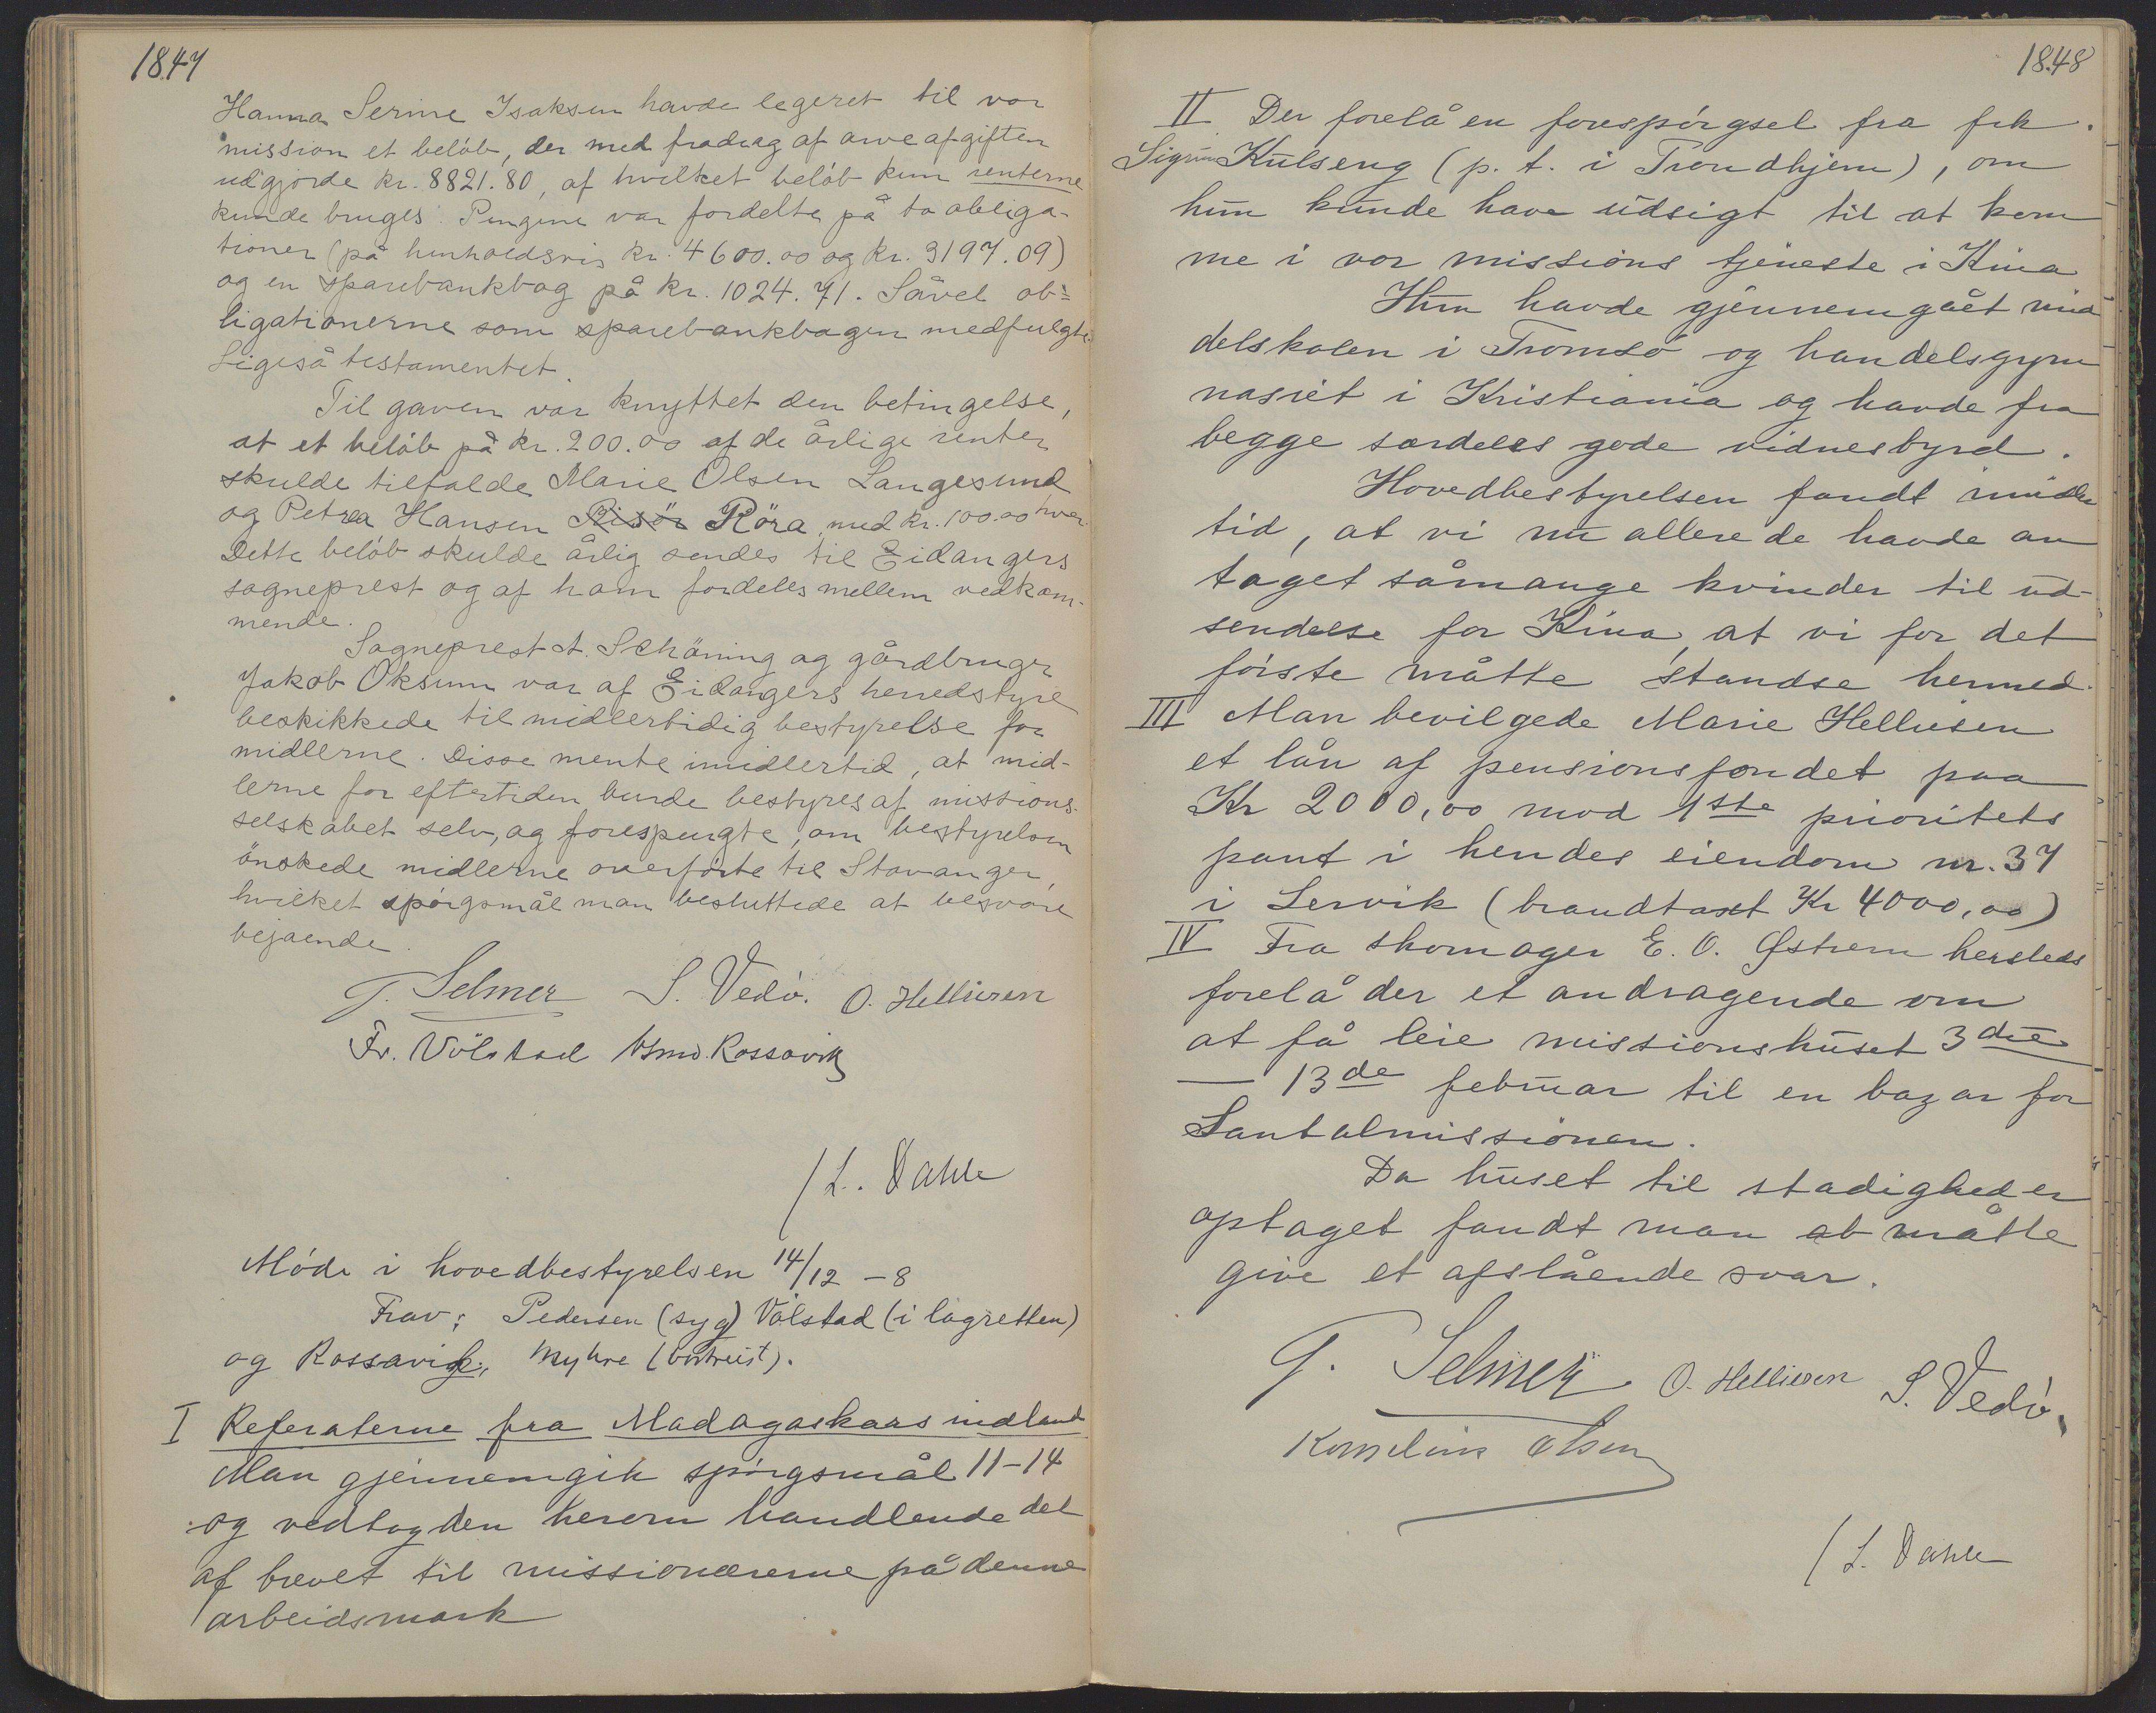 1847
Hanna Serine Isaksen havde legeret til vor
mission et beløb, der med fradrag af arveafgiften
udgjorde kr. 8821.80, af hvilket beløb kun renterne
kunde bruges. Pengene var fordelte på to obliga-
tioner (på henholdsvis kr. 4600.00 og kr. 3197.09)
og en sparebankbog på kr. 1024.71. Såvel ob-
ligationerne som sparebankbogen medfulgte.
Ligeså testamentet.
Til gaven var knyttet den betingelse,
at et beløb på kr. 200.00 af de årlige renter
skulde tilfalde Marie Olsen Langesund
og Petrea Hansen Risör Röra, med kr. 100.00 hver.
Dette beløb skulde årlig sendes til Eidangers
sogneprest og af ham fordeles mellem vedkom-
mende.
Sogneprest A. Schöning og gårdbruger
Jakob Oksum var af Eidangers herredstyre
beskikkede til midlertidig bestyrelse for
midlerne. Disse mente imidlertid, at mid-
lerne for eftertiden burde bestyres af missions-
selskabet selv, og forespurgte, om bestyrelsen
önskede midlerne overførte til Stavanger,
hvilket spörgsmål man besluttede at besvare
bejaende.
T. Selmer S. Vedö. O. Helliesen
Fr. Völstad Asmd. Rossavik
/L. Dahle
Möde i hovedbestyrelsen 14/12 - 8
Frav: Pedersen (syg) Völstad (i lagretten)
og Rossavik, Myhre (bortreist).
I Referaterne fra Madagaskars indland
Man gjennemgik spörgsmål 11-14
og vedtog den herom handlende del
af brevet til missionærerne på denne
arbeidsmark
1848
II Der forelå en forespörgsel fra frk.
Sigrun Kulseng (p. t. i Trondhjem), om
hun kunde have udsigt til at kom
me i vor missions tjeneste i Kina
Hun havde gjennemgået mid
delskolen i Tromsö og handelsgym
nasiet i Kristiania og havde fra
begge særdeles gode vidnesbyrd.
Hovedbestyrelsen fandt imidler
tid, at vi nu allerede havde an
taget såmange kvinder til ud-
sendelse for Kina, at vi for det
förste måtte standse hermed.
III Man bevilgede Marie Helliesen
et lån af pensionsfondet paa
Kr 2000,00 mod 1ste prioritets
pant i hendes eiendom nr. 37
i Lervik (brandtaxt Kr 4000,00)
IV Fra skomager E. O. Østrem hersteds
forelå der et andragende om
at få leie missionshuset 3die
— 13de februar til en bazar for
Santalmissionen.
Da huset til stadighed er
optaget fandt man at måtte
give et afslående svar.
T. Selmer O. Helliesen S. Vedö.
Kornelius Olsen
/L. Dahle